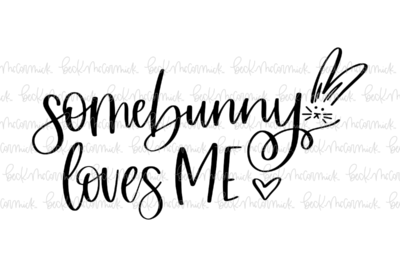 somebunny
loves ME